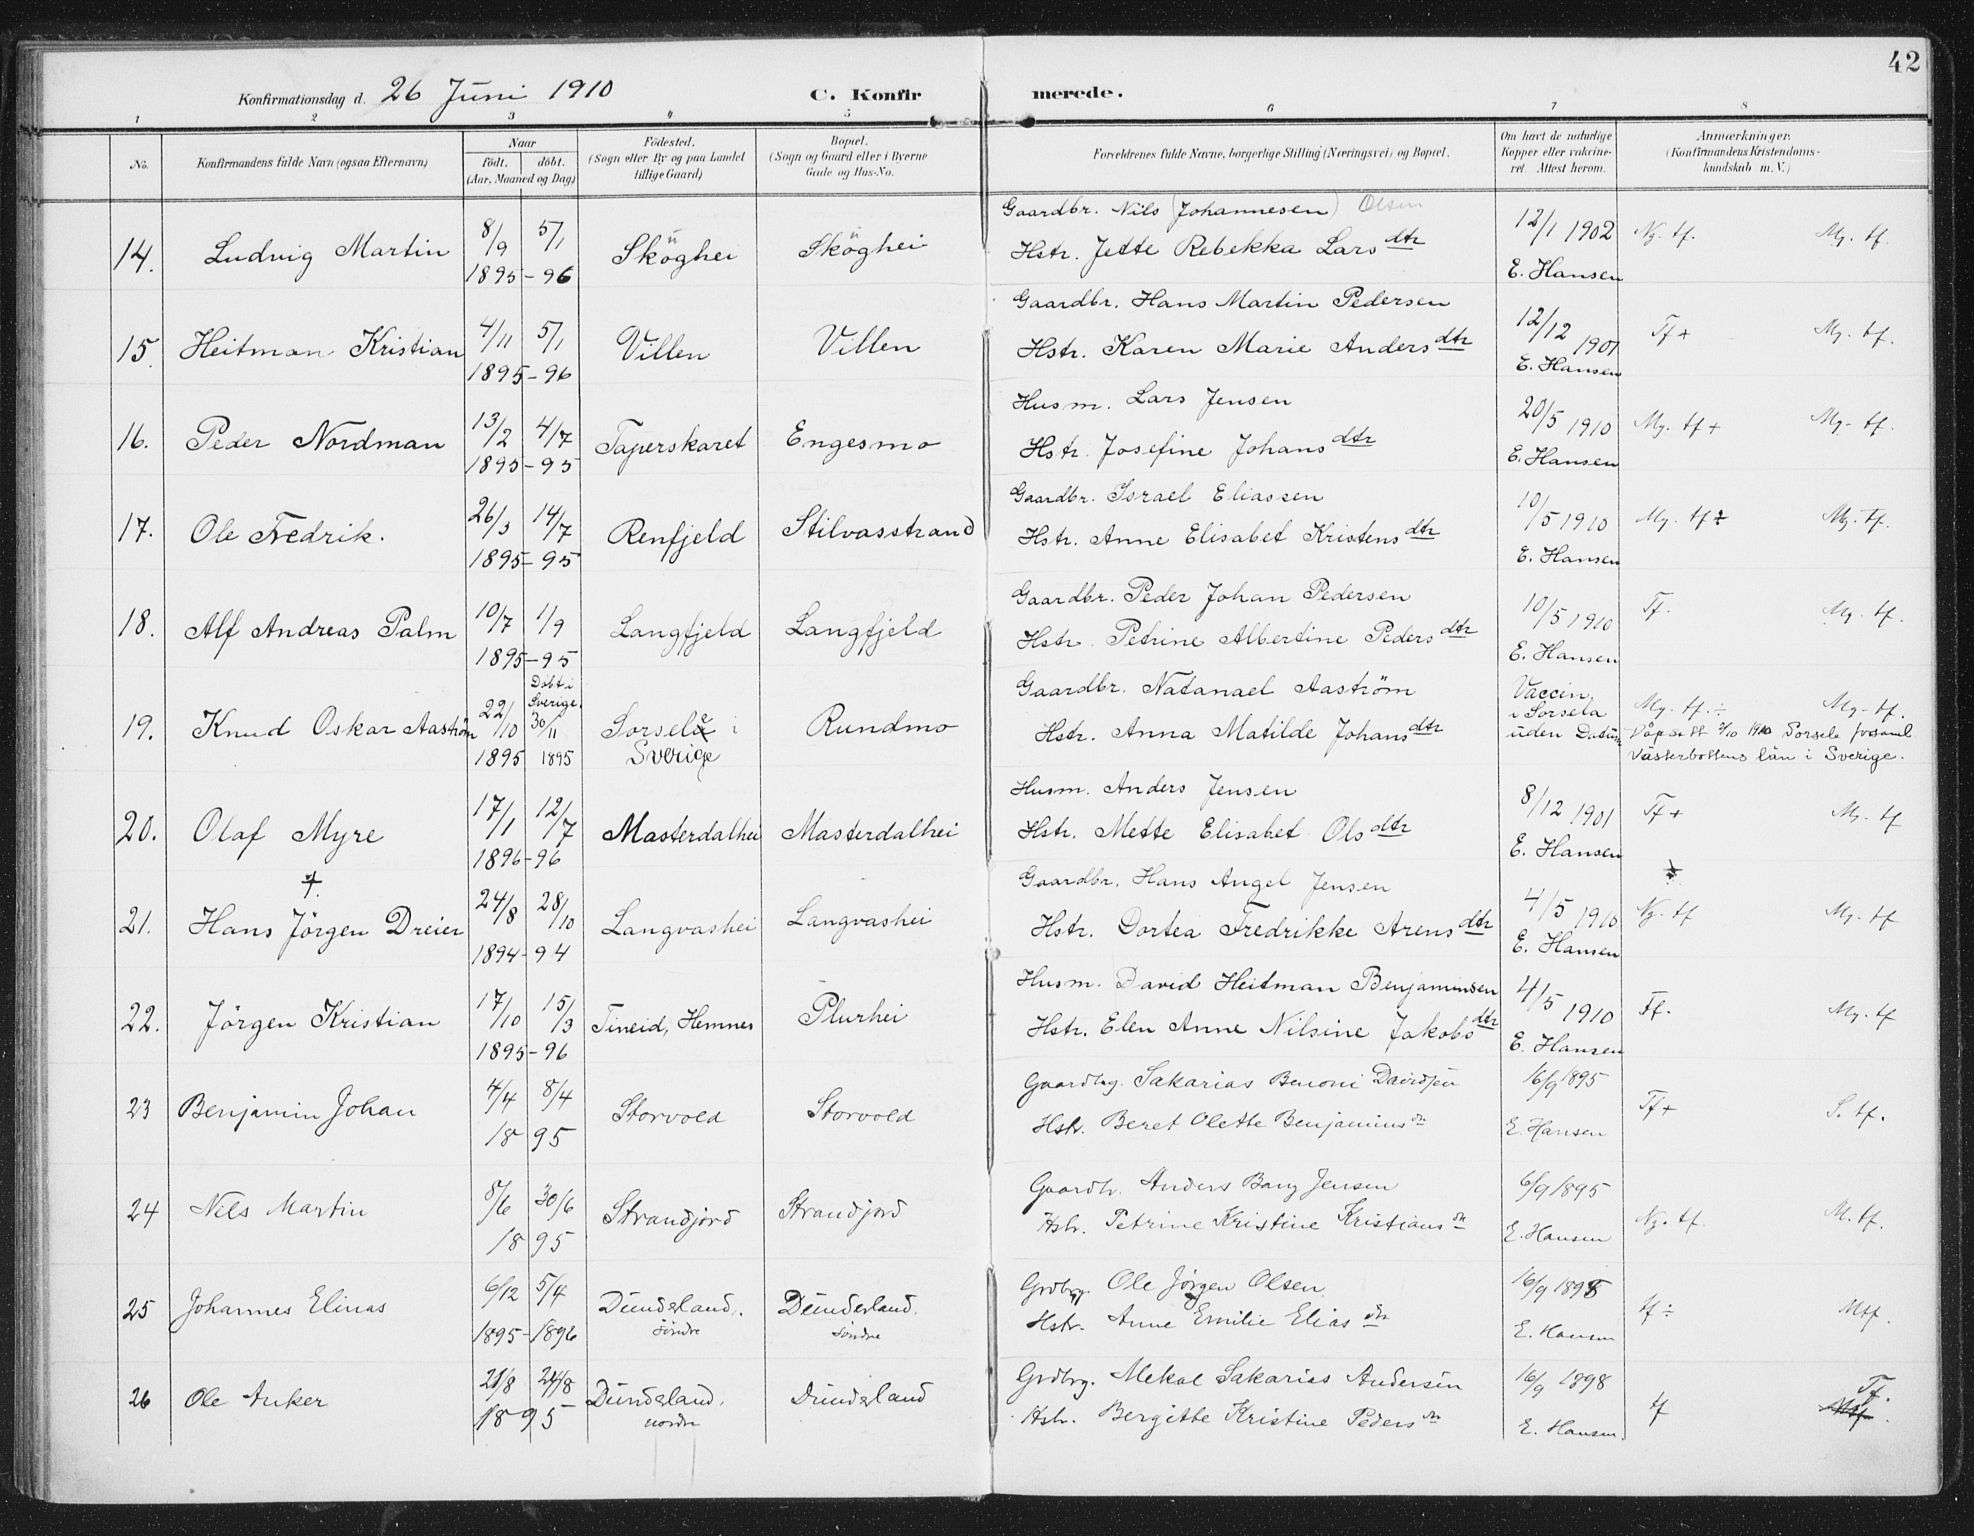 42
Konfirmationsdag d. 26 Juni 1910 C. Konfirmerede.
1 2 3 4 5 6 7 8
No. Konfirmandens fulde Navn (ogsaa Efternavn) Naar født. døbt. (Aar, Maaned og Dag) Fødested. (Sogn eller By og paa Landet tillige Gaard) Bopæl. (Sogn og Gaard eller i Byerne Gade og Hus-No. Forældrenes fulde Navne, borgerlige Stilling (Næringsvei) og Bopæl. Om havt de naturlige Kopper eller vaccineret. Attest herom. Anmærkninger. (Konfirmandens Kristendomskundskab m. V.)
Gaardbr. Nils (Johannesen) Olsen
14. Ludvig Martin 8/9 5/1 Skoghei Skoghei Hstr. Jette Rebekka Larsdtr 12/1 1902 Ng. tf. Mg. tf.
1895 - 96 E. Hansen
Gaardbr. Hans Martin Pedersen
15. Heitman Kristian 4/11 5/1 Villen Villen Hstr. Karen Marie Andersdtr 12/12 1901 Tf + Mg. tf.
1895 - 96 E. Hansen
Husm. Lars Jensen
16. Peder Nordman 13/2 4/7 Taperskaret Engesmo Hstr. Josefine Johansdtr 20/5 1910 Mg. tf + Mg. tf.
1895 - 95 E. Hansen
Gaardbr. Israel Eliassen
17. Ole Fredrik. 26/3 14/7 Renfjeld Stilvasstrand Hstr. Anne Elisabet Kristensdtr 10/5 1910 Mg. tf Mg. Tf.
1895 - 95 E. Hansen
Gaardbr. Peder Johan Pedersen
18. Alf Andreas Palm 10/7 1/9 Langfjeld Langfjeld Hstr. Petrine Albertine Pedersdtr 10/5 1910 Tf. Mg. tf.
1895 - 95 E. Hansen
Døbt i Sverige.
Gaardbr. Natanael Aaström Vaccin.
19. Knud Oskar Aaström 22/10 30/11 Sorsele i Rundmo Hstr. Anna Matilde Johansdtr i Sorsela uden Datum Mg. tf. ÷ Mg. tf.
1895 1895 Sverige 1910 Sorsela forsaml Västerbottens län i Sverige.
Husm. Anders Jensen
20. Olaf Myre 17/1 12/7 Masterdalhei Masterdalhei Hstr. Mette Elisabet Olsdtr 8/12 1901 Tf + Mg. tf
1896 - 96 E. Hansen
Gaardbr. Hans Angel Jensen
21. Hans Jörgen Dreier 24/8 28/10 Langvashei Langvashei Hstr. Dortea Fredrikke Arensdtr 4/5 1910 Ng. tf Mg. tf
1894 - 94 E. Hansen
Husm. David Heitman Benjaminsen
22. Jörgen Kristian 17/10 15/3 Tineid, Hemnes Plurhei Hstr. Elen Anne Nilsine Jakobsdtr 4/5 1910 Tf. Mg. tf
1895 - 96 E. Hansen
Gaardbrg. Sakarias Benoni Davidsen 16/9 1895
23 Benjamin Johan 4/4 8/4 Storvold Storvold Hstr. Beret Olette Benjaminsdr Tf + S. tf.
1895 E. Hansen
Gaardbr. Anders Bang Jensen 6/9 1895
24 Nils Martin 8/6 30/6 Strandjord Strandjord Hstr. Petrine Kristine Kristiansdr Ng. tf. M. tf.
1895 E. Hansen
Grdbrg. Ole Jørgen Olsen 16/9 1898
25 Johannes Elinas 6/12 5/4 Dunderland. Dunderland. Hstr. Anne Emilie Eliasdr tf ÷ Mtf.
1895 - 1896 Søndre Søndre E. Hansen
Grdbrg. Mekal Sakarias Andersen 16/9 1898 Tf.
26 Ole Anker 21/8 24/8 Dunderland. Dunderland Hstr. Bergitte Kristine Pedersdr tf
1895 nordre E. Hansen